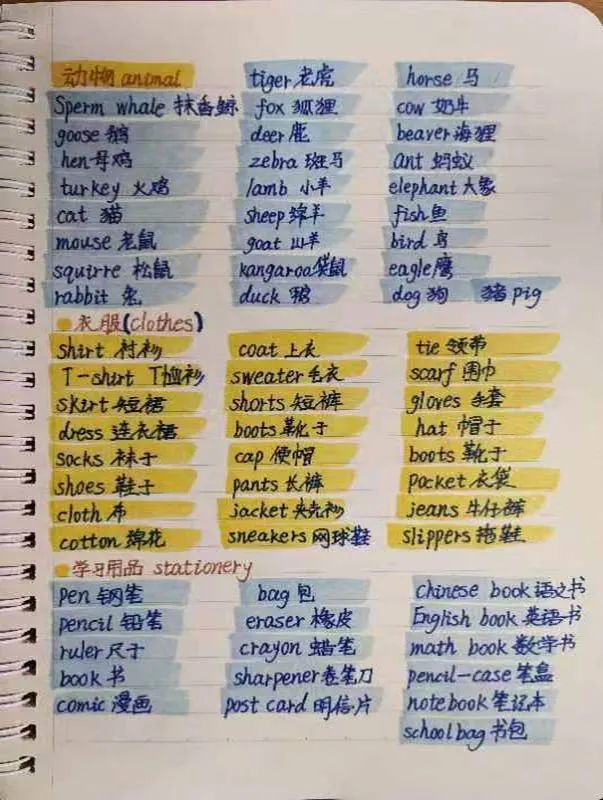 动物 animal tiger 老虎 horse 马
Sperm whale 抹香鲸 fox 狐狸 cow 奶牛
goose 鹅 deer 鹿 beaver 海狸
hen 母鸡 zebra 斑马 ant 蚂蚁
turkey 火鸡 lamb 小羊 elephant 大象
cat 猫 sheep 绵羊 fish 鱼
mouse 老鼠 goat 山羊 bird 鸟
squirre 松鼠 kangaroo 袋鼠 eagle 鹰
rabbit 兔 duck 鸭 dog 狗 猪 pig
衣服(clothes)
shirt 衬衫 coat 上衣 tie 领带
T-shirt T恤衫 sweater 毛衣 scarf 围巾
skirt 短裙 shorts 短裤 gloves 手套
dress 连衣裙 boots 靴子 hat 帽子
socks 袜子 cap 便帽 boots 靴子
shoes 鞋子 pants 长裤 pocket 衣袋
cloth 布 jacket 夹克衫 jeans 牛仔裤
cotton 绵花 sneakers 网球鞋 slippers 拖鞋
学习用品 stationery
pen 钢笔 bag 包 Chinese book 语文书
pencil 铅笔 eraser 橡皮 English book 英语书
ruler 尺子 crayon 蜡笔 math book 数学书
book 书 sharpener 卷笔刀 pencil-case 笔盒
comic 漫画 post card 明信片 notebook 笔记本
schoolbag 书包